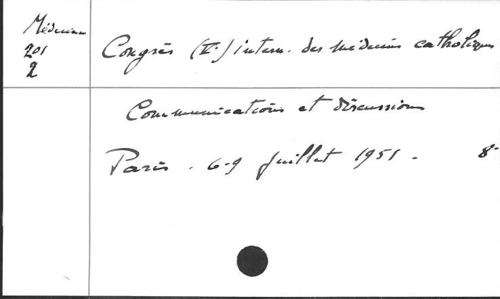 Médecine
201
2
Congrès (Vᵉ) intern. des médecins catholiques
Communications et discussions
Paris . 6-9 Juillet 1951 . 8°